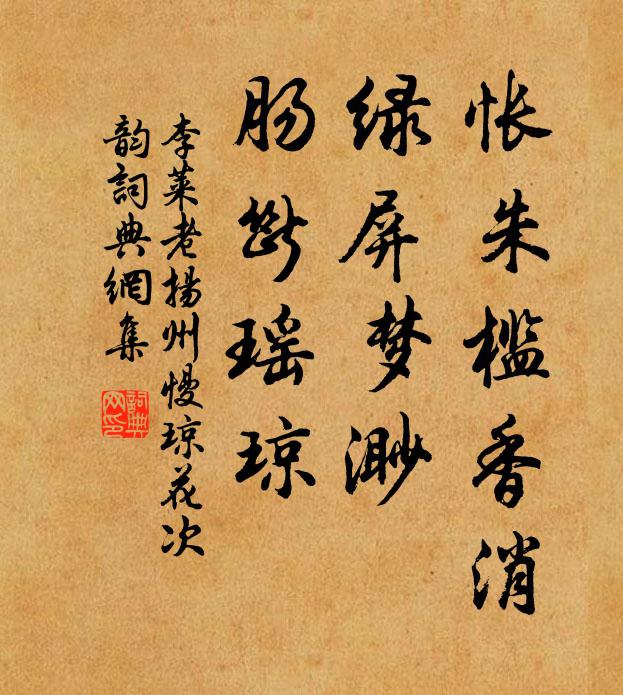 怅朱槛香消
绿屏梦渺
肠断瑶琼
李莱老揚州慢琼花次
韵詞典網集
詞典
网印